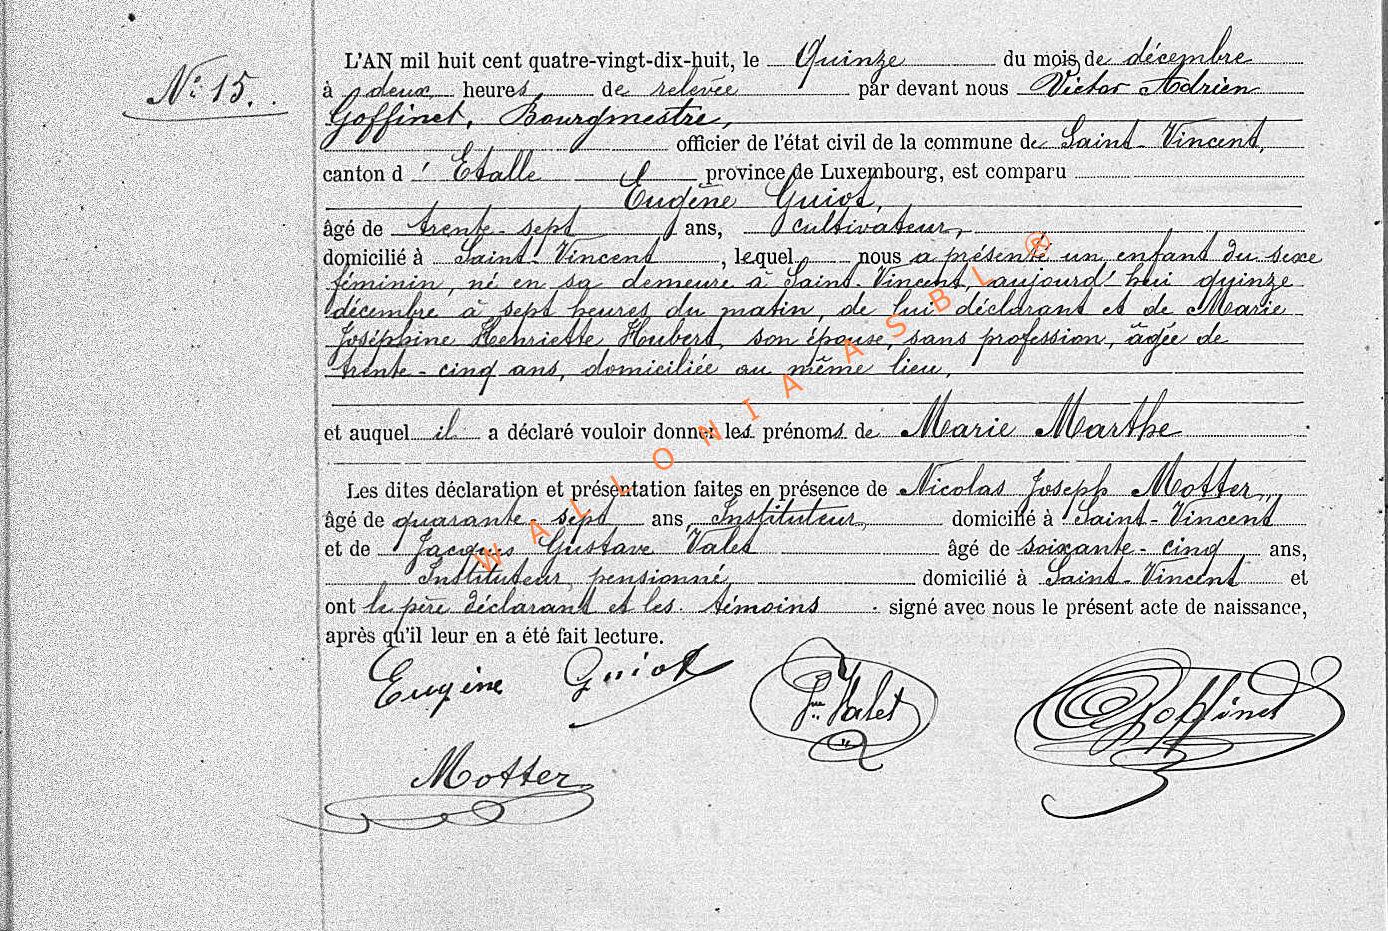 N° 15.
L'AN mil huit cent quatre-vingt-dix-huit, le Quinze du mois de décembre
à deux heures de relevée par devant nous Victor Adrien
Goffinet, Bourgmestre,
officier de l'état civil de la commune de Saint-Vincent,
canton d'Etalle province de Luxembourg, est comparu
Eugène Guiot,
âgé de trente-sept ans, cultivateur,
domicilié à Saint-Vincent, lequel nous a présenté un enfant du sexe
féminin, né en sa demeure à Saint-Vincent, aujourd'hui quinze
décembre à sept heures du matin, de lui déclarant et de Marie
Joséphine Henriette Hubert, son épouse, sans profession, âgée de
trente-cinq ans, domiciliée au même lieu,
et auquel il a déclaré vouloir donner les prénoms de Marie Marthe
Les dites déclaration et présentation faites en présence de Nicolas Joseph Motter,
âgé de quarante-sept ans, Instituteur, domicilié à Saint-Vincent
et de Jacques Gustave Valet âgé de soixante-cinq ans,
Instituteur pensionné, domicilié à Saint-Vincent et
ont le père déclarant et les témoins signé avec nous le présent acte de naissance,
après qu'il leur en a été fait lecture.
Eugène Guiot
Valet
Goffinet
Motter
WALLONIA ASBL ®